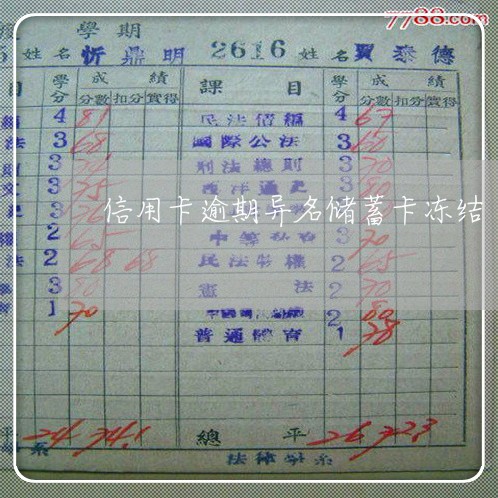 7788.com
學期
姓名 忻鼎明 2616 姓名 賈泰德
目 學分 成績 課目 學分 成績
分數 扣分 實得 分數 扣分 實得
4 81 民法債編 4 67
法 3 68 國際公法 3 60
3 刑法總則 3 70
3 75 西洋通史 3 80
信用卡逾期异名储蓄卡冻结
2 65 3 70
法 2 68 68 民法物權 2 65
3 80 憲法 2 70
1 70 2 80
普通體育 1 78
平 24 74.1 總平 26 72.3
系 法律學系